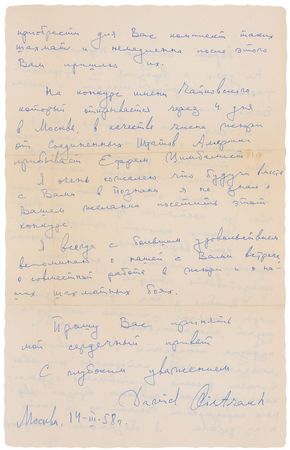 приобрести для Вас комплект таких
шахмат и немедленно после этого
Вам пришлю их.
На конкурс имени Чайковского,
который открывается через 4 дня
в Москве, в качестве члена жюри
от Соединенных Штатов Америки
приезжает Ефрем Цимбалист
Я очень сожалею, что будучи вместе
с Вами в Познани я не узнал о
Вашем желании посетить этот
конкурс.
Я всегда с большим удовольствием
вспоминаю о нашей с Вами встрече
о совместной работе в жюри и о на-
ших шахматных боях.
Прошу Вас принять
мой сердечный привет
С глубоким уважением
David Oistrakh
Москва, 14-III-58 г.